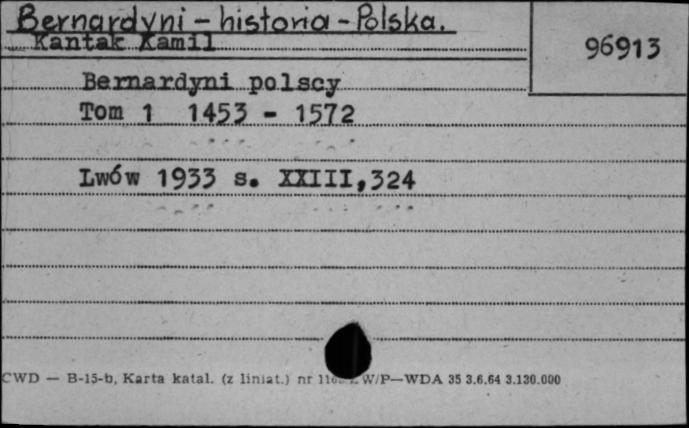 Bernardyni - historia - Polska.
96913
Kantak Kamil
Bernardyni polscy
Tom 1 1453 - 1572
Lwów 1933 s. XXIII,324
CWD — B-15-b, Karta katal. (z liniat.) nr W/P—WDA 35 3.6.64 3.130.000